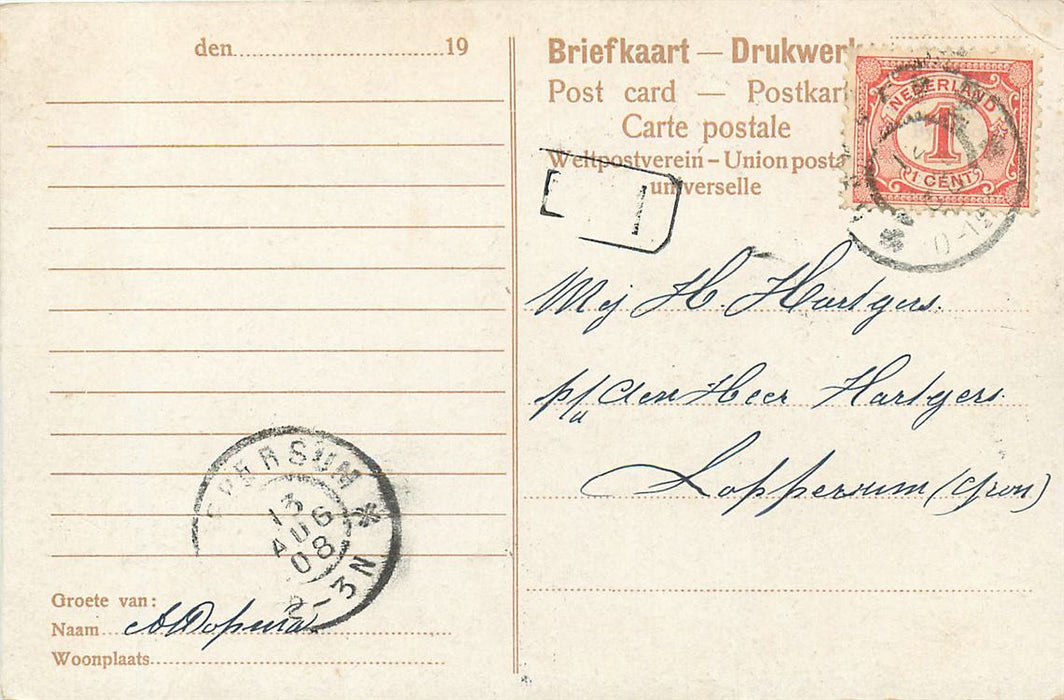 den 19
Groete van:
Naam
Woonplaats
PERSUM
13
AUG
08
-3N
Briefkaart — Drukwerk
Post card — Postkart
Carte postale
Weltpostverein - Union posta
universelle
NEDERLAND
1
1 CENT
Mej H. Hartgers.
p/a den Heer Hartgers
Loppersum (Gron)